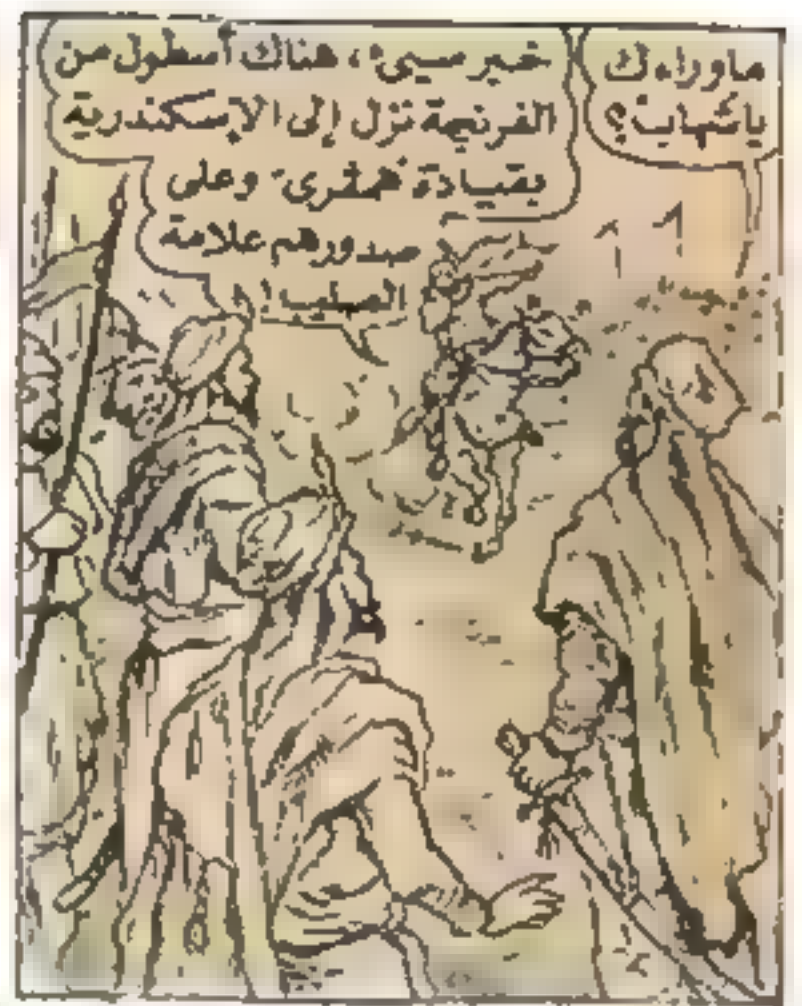 ماوراءك
ياشهاب؟
خبر سيئ، هناك أسطول من
الفرنجة نزل إلى الإسكندرية
بقيادة "همفرى" وعلى
صدورهم علامة
الصليب!